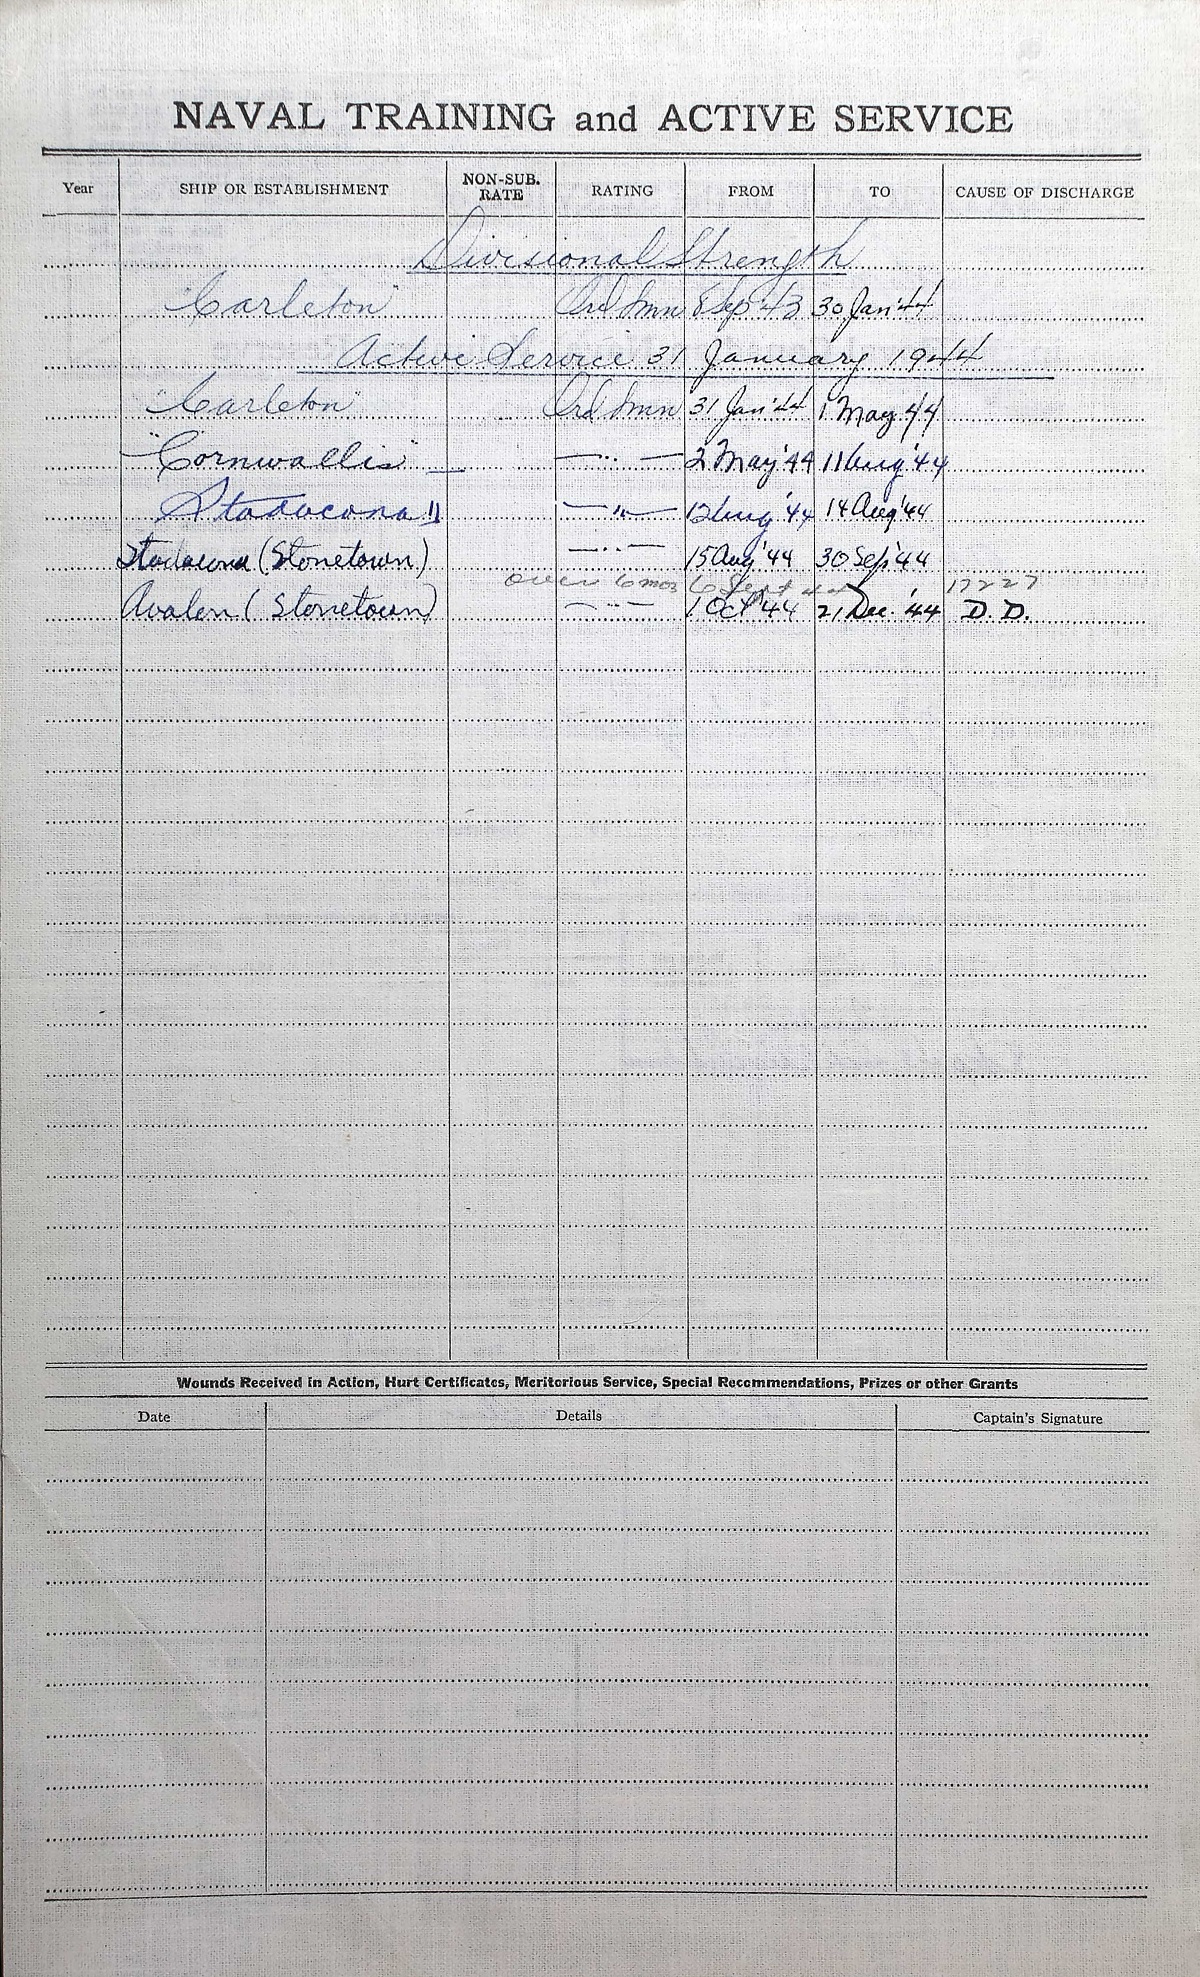 NAVAL TRAINING and ACTIVE SERVICE
Year SHIP OR ESTABLISHMENT NON-SUB. RATE RATING FROM TO CAUSE OF DISCHARGE
Divisional Strength
"Carleton" Ord Smn 8 Sep '43 30 Jan '44
Active Service 31 January 1944
"Carleton" Ord Smn 31 Jan '44 1 May '44
"Cornwallis" — " — 2 May '44 11 Aug '44
Stadacona II — " — 12 Aug '44 14 Aug '44
Stadacona (Stonetown) — " — 15 Aug '44 30 Sep '44
over 6 mos 6 Sept 44 17227
Avalon (Stonetown) — " — 1 Oct '44 21 Dec. '44 D.D.
Wounds Received in Action, Hurt Certificates, Meritorious Service, Special Recommendations, Prizes or other Grants
Date Details Captain's Signature